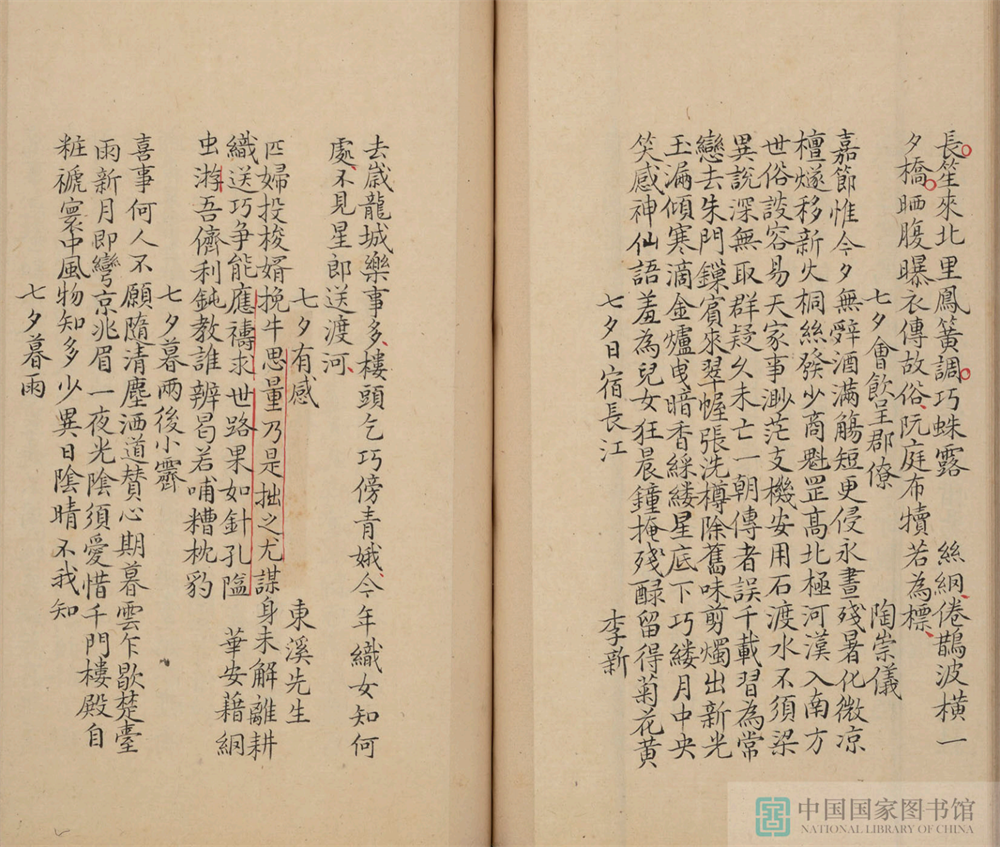 長笙來北里鳳簧調巧蛛露　絲網倦鵲波橫一
夕橋晒腹曝衣傳故俗阮庭布犢若為標
七夕會飲呈郡僚　陶崇儀
嘉節惟今夕無辭酒滿觴短更侵永晝殘暑化微凉
檀燧移新火桐絲發少商魁罡髙北極河漢入南方
世俗談容易天家事渺茫支機安用石渡水不須梁
異說深無取群疑久未亡一朝傳者誤千載習為常
戀去朱門鏁賓來翠幄張洗樽除舊味剪燭出新光
玉漏傾寒滴金爐曵暗香綵縷星底下巧縷月中央
笑感神仙語羞為兒女狂晨鐘掩殘醁留得菊花黃
七夕日宿長江　李新
去歲龍城樂事多樓頭乞巧傍青娥今年織女知何
處不見星郎送渡河
七夕有感　東溪先生
匹婦投梭婿挽牛思量乃是拙之尤謀身未解離耕
織送巧争能應禱求世路果如針孔隘　華安藉綗
虫游吾儕利鈍教誰辨曷若哺糟枕豹
七夕暮雨後小霽
喜事何人不願隨清塵洒道賛心期暮雲乍歇楚臺
雨新月即彎京兆眉一夜光陰須愛惜千門樓殿自
粧褫寰中風物知多少異日陰晴不我知
七夕暮雨
中国国家图书馆
NATIONAL LIBRARY OF CHINA